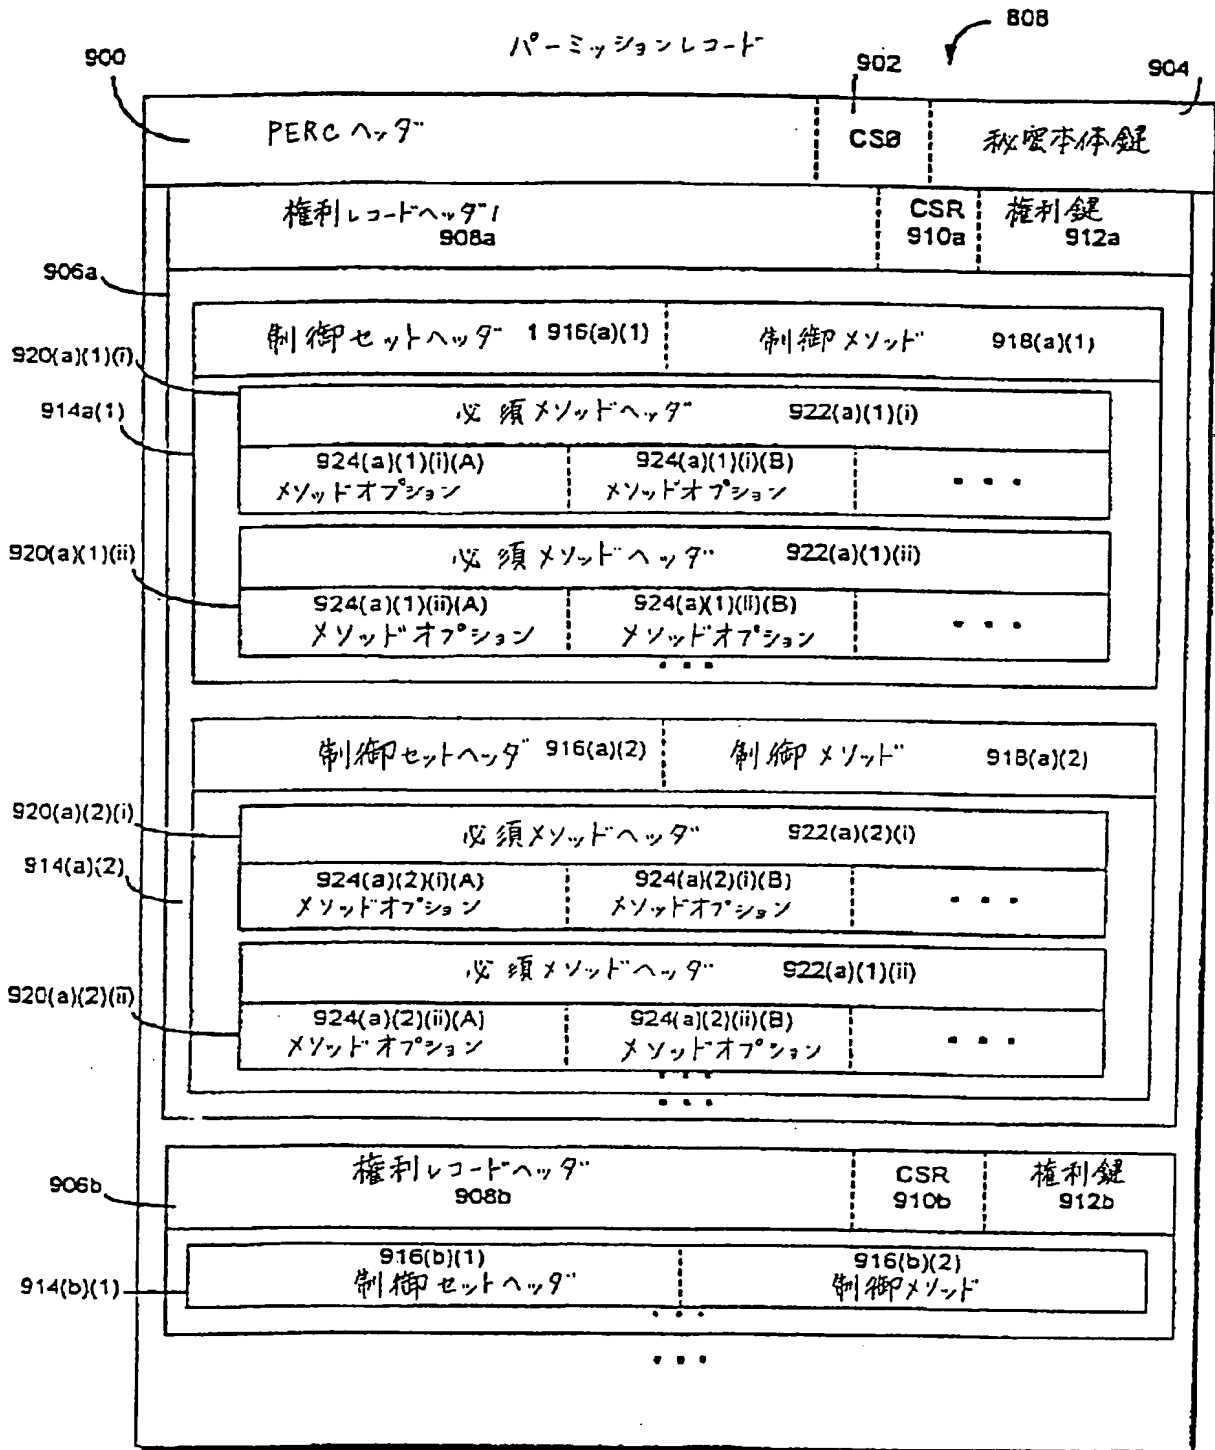 808
パーミッションレコード
900
902
904
PERC ヘッダ
CS0
秘密本体鍵
権利レコードヘッダ1
908a
CSR
910a
権利鍵
912a
906a
制御セットヘッダ 1 916(a)(1)
制御メソッド 918(a)(1)
920(a)(1)(i)
914a(1)
必須メソッドヘッダ 922(a)(1)(i)
924(a)(1)(i)(A)
メソッドオプション
924(a)(1)(i)(B)
メソッドオプション
...
920(a)(1)(ii)
必須メソッドヘッダ 922(a)(1)(ii)
924(a)(1)(ii)(A)
メソッドオプション
924(a)(1)(ii)(B)
メソッドオプション
...
...
制御セットヘッダ 916(a)(2)
制御メソッド 918(a)(2)
920(a)(2)(i)
914(a)(2)
必須メソッドヘッダ 922(a)(2)(i)
924(a)(2)(i)(A)
メソッドオプション
924(a)(2)(i)(B)
メソッドオプション
...
920(a)(2)(ii)
必須メソッドヘッダ 922(a)(1)(ii)
924(a)(2)(ii)(A)
メソッドオプション
924(a)(2)(ii)(B)
メソッドオプション
...
...
...
906b
権利レコードヘッダ
908b
CSR
910b
権利鍵
912b
914(b)(1)
916(b)(1)
制御セットヘッダ
916(b)(2)
制御メソッド
...
...